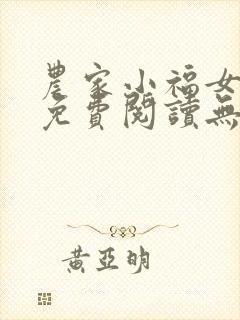 農家小福女
免費閱讀無
黃亞明